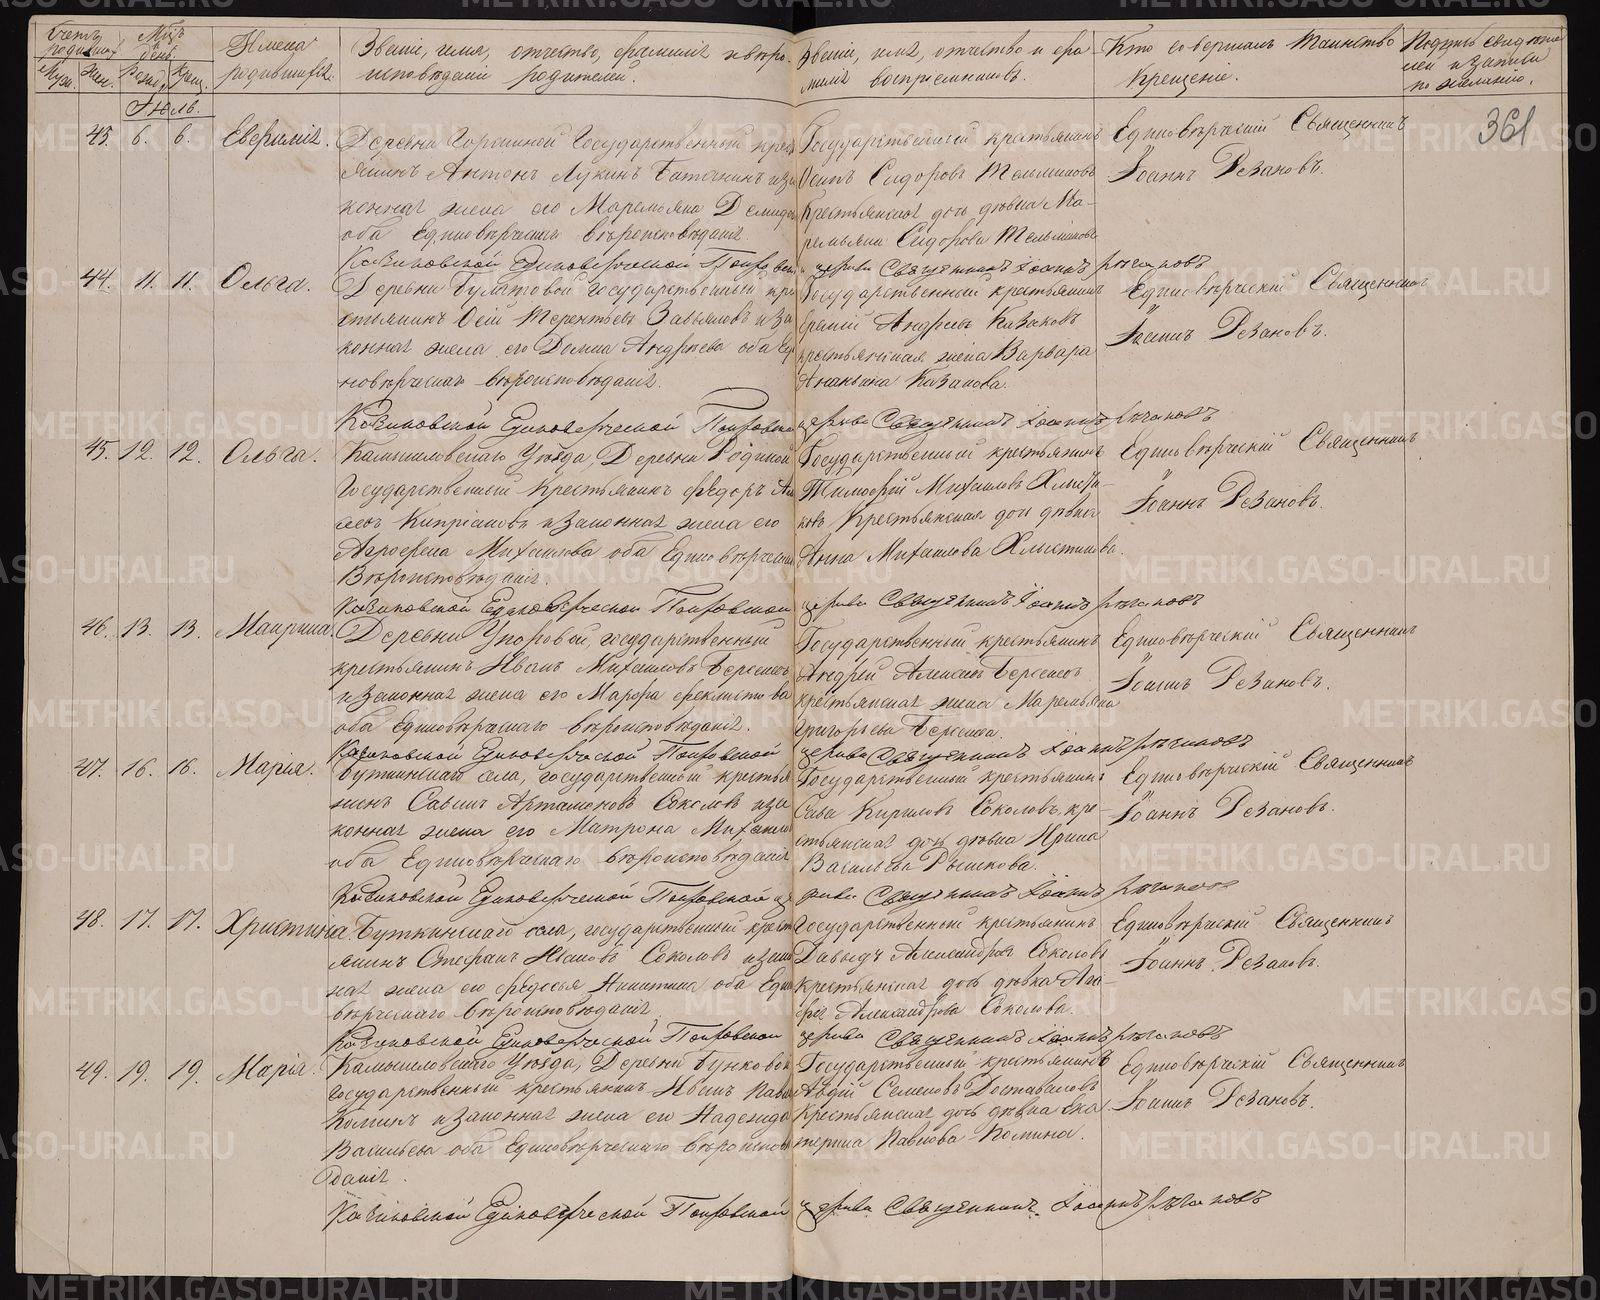 Счетъ родившихся
Муж. Жен.
Мѣс. день
Рожд. Крещ.
Имена родившихся.
Званіе, имя, отчество, фамилія и вѣро-
исповѣданіе родителей.
Званіе, имя, отчество и фа-
милія воспріемниковъ.
Кто совершалъ таинство
крещенія.
Подпись свидѣте-
лей и записи
по желанію.
Іюль.
361
43. 6. 6. Евфимія.
Деревни Горскиной Государственный крес
янинъ Антонъ Лукинъ и за
конная жена его Маремьяна Демидо
оба Единовѣрческаго вѣроисповѣданія.
Государственный крестьянинъ
Осипъ Сидоровъ Тельминовъ
Крестьянская дочь дѣвка Ма-
ремьяна Сидорова Тельминова
Единовѣрческій Священникъ
Іоаннъ Рѣзановъ.
Единоверческой Покровской церкви Священникъ Іоаннъ Рѣзановъ
44. 11. 11. Ольга.
Деревни Булатовой государственный кре
стьянинъ Терентьевъ Завьяловъ и за
конная жена его Домна Андреева оба Еди
новѣрческаго вѣроисповѣданія.
Государственный крестьянинъ
Андреевъ Казаковъ
крестьянская жена Варвара
Ананьина Казакова.
Единовѣрческій Священникъ
Іоаннъ Рѣзановъ.
Единоверческой Покровской церкви Священникъ Іоаннъ Рѣзановъ
45. 12. 12. Ольга.
Камышловскаго Уѣзда, Деревни Родиной
Государственный крестьянинъ Федоръ
Кипріановъ и законная жена его
Агрофена Михаилова оба Единовѣрческаго
Вѣроисповѣданія.
Государственный крестьянинъ
Тимофей Михаиловъ Хлысти-
новъ Крестьянская дочь дѣвка
Анна Михаилова Хлыстинова.
Единовѣрческій Священникъ
Іоаннъ Рѣзановъ.
Единоверческой Покровской церкви Священникъ Іоаннъ Рѣзановъ
46. 13. 13. Маврина.
Деревни Упоровой, государственный
крестьянинъ Иванъ Михаиловъ Берсеневъ
и законная жена его Марфа Феклистова
оба Единовѣрческаго вѣроисповѣданія.
Государственный крестьянинъ
Андрей Алексѣевъ Берсеневъ
крестьянская жена Маремьяна
Григорьева Берсенева.
Единовѣрческій Священникъ
Іоаннъ Рѣзановъ.
Единоверческой Покровской церкви Священникъ Іоаннъ Рѣзановъ
47. 16. 16. Марія.
Буткинскаго села, государственный крестья
нинъ Савинъ Артамоновъ Соколовъ и за
конная жена его Матрона Михаилова
оба Единовѣрческаго вѣроисповѣданія
Государственный крестьянинъ
Сава Кириловъ Соколовъ, кре-
стьянская дочь дѣвка Ирина
Васильева
Единовѣрческій Священникъ
Іоаннъ Рѣзановъ.
Единоверческой Покровской церкви Священникъ Іоаннъ Рѣзановъ
48. 17. 17. Христина.
Буткинскаго села, государственный крест
янинъ Стефанъ Соколовъ и закон
ная жена его Федосья Никитина оба Един
вѣрческаго вѣроисповѣданія.
Государственный крестьянинъ
Давыдъ Александровъ Соколовъ
крестьянская дочь дѣвка Ага-
фія Александрова Соколова.
Единовѣрческій Священникъ
Іоаннъ Рѣзановъ.
Единоверческой Покровской церкви Священникъ Іоаннъ Рѣзановъ
49. 19. 19. Марія.
Камышловскаго Уѣзда, Деревни Бунковой
государственный крестьянинъ Иванъ Павлов
Коминъ и законная жена его Надежда
Васильева оба Единовѣрческаго вѣроисповѣ
данія.
Государственный крестьянинъ
Авдій Семеновъ Доставаловъ
Крестьянская дочь дѣвка Ека
терина Павлова Комина.
Единовѣрческій Священникъ
Іоаннъ Рѣзановъ.
Единоверческой Покровской церкви Священникъ Іоаннъ Рѣзановъ
METRIKI.GASO-URAL.RU